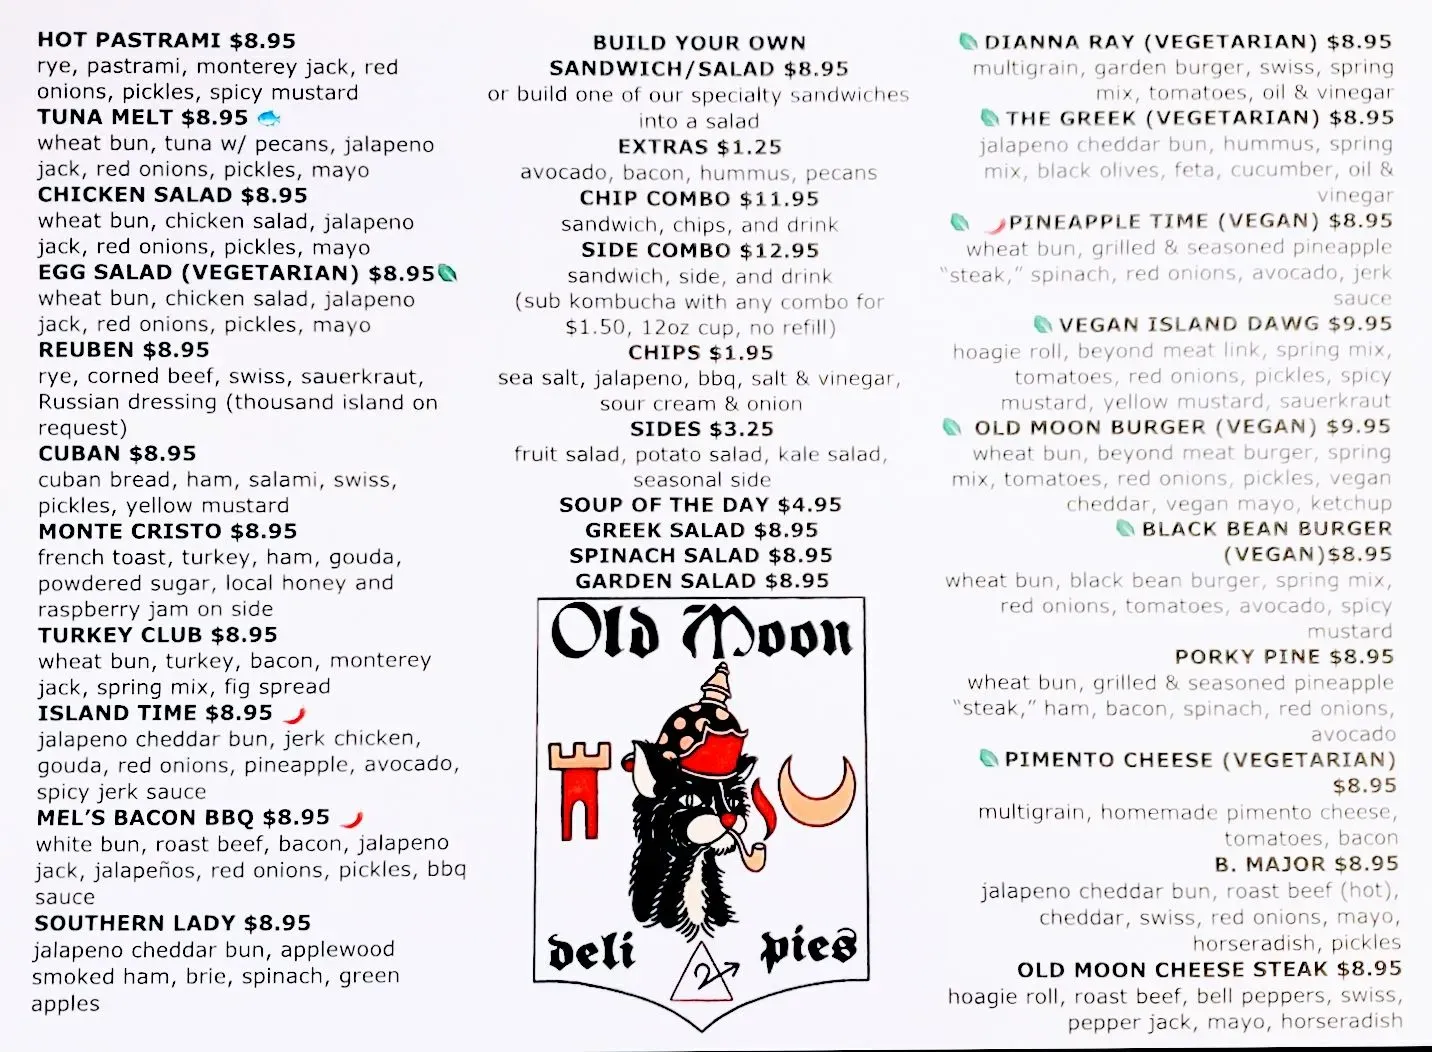 HOT PASTRAMI $8.95
rye, pastrami, monterey jack, red
onions, pickles, spicy mustard
TUNA MELT $8.95
wheat bun, tuna w/ pecans, jalapeno
jack, red onions, pickles, mayo
CHICKEN SALAD $8.95
wheat bun, chicken salad, jalapeno
jack, red onions, pickles, mayo
EGG SALAD (VEGETARIAN) $8.95
wheat bun, chicken salad, jalapeno
jack, red onions, pickles, mayo
REUBEN $8.95
rye, corned beef, swiss, sauerkraut,
Russian dressing (thousand island on
request)
CUBAN $8.95
cuban bread, ham, salami, swiss,
pickles, yellow mustard
MONTE CRISTO $8.95
french toast, turkey, ham, gouda,
powdered sugar, local honey and
raspberry jam on side
TURKEY CLUB $8.95
wheat bun, turkey, bacon, monterey
jack, spring mix, fig spread
ISLAND TIME $8.95
jalapeno cheddar bun, jerk chicken,
gouda, red onions, pineapple, avocado,
spicy jerk sauce
MEL'S BACON BBQ $8.95
white bun, roast beef, bacon, jalapeno
jack, jalapeños, red onions, pickles, bbq
sauce
SOUTHERN LADY $8.95
jalapeno cheddar bun, applewood
smoked ham, brie, spinach, green
apples
BUILD YOUR OWN
SANDWICH/SALAD $8.95
or build one of our specialty sandwiches
into a salad
EXTRAS $1.25
avocado, bacon, hummus, pecans
CHIP COMBO $11.95
sandwich, chips, and drink
SIDE COMBO $12.95
sandwich, side, and drink
(sub kombucha with any combo for
$1.50, 12oz cup, no refill)
CHIPS $1.95
sea salt, jalapeno, bbq, salt & vinegar,
sour cream & onion
SIDES $3.25
fruit salad, potato salad, kale salad,
seasonal side
SOUP OF THE DAY $4.95
GREEK SALAD $8.95
SPINACH SALAD $8.95
GARDEN SALAD $8.95
Old Moon
deli pies
2
DIANNA RAY (VEGETARIAN) $8.95
multigrain, garden burger, swiss, spring
mix, tomatoes, oil & vinegar
THE GREEK (VEGETARIAN) $8.95
jalapeno cheddar bun, hummus, spring
mix, black olives, feta, cucumber, oil &
vinegar
PINEAPPLE TIME (VEGAN) $8.95
wheat bun, grilled & seasoned pineapple
"steak," spinach, red onions, avocado, jerk
sauce
VEGAN ISLAND DAWG $9.95
hoagie roll, beyond meat link, spring mix,
tomatoes, red onions, pickles, spicy
mustard, yellow mustard, sauerkraut
OLD MOON BURGER (VEGAN) $9.95
wheat bun, beyond meat burger, spring
mix, tomatoes, red onions, pickles, vegan
cheddar, vegan mayo, ketchup
BLACK BEAN BURGER
(VEGAN)$8.95
wheat bun, black bean burger, spring mix,
red onions, tomatoes, avocado, spicy
mustard
PORKY PINE $8.95
wheat bun, grilled & seasoned pineapple
"steak," ham, bacon, spinach, red onions,
avocado
PIMENTO CHEESE (VEGETARIAN)
$8.95
multigrain, homemade pimento cheese,
tomatoes, bacon
B. MAJOR $8.95
jalapeno cheddar bun, roast beef (hot),
cheddar, swiss, red onions, mayo,
horseradish, pickles
OLD MOON CHEESE STEAK $8.95
hoagie roll, roast beef, bell peppers, swiss,
pepper jack, mayo, horseradish